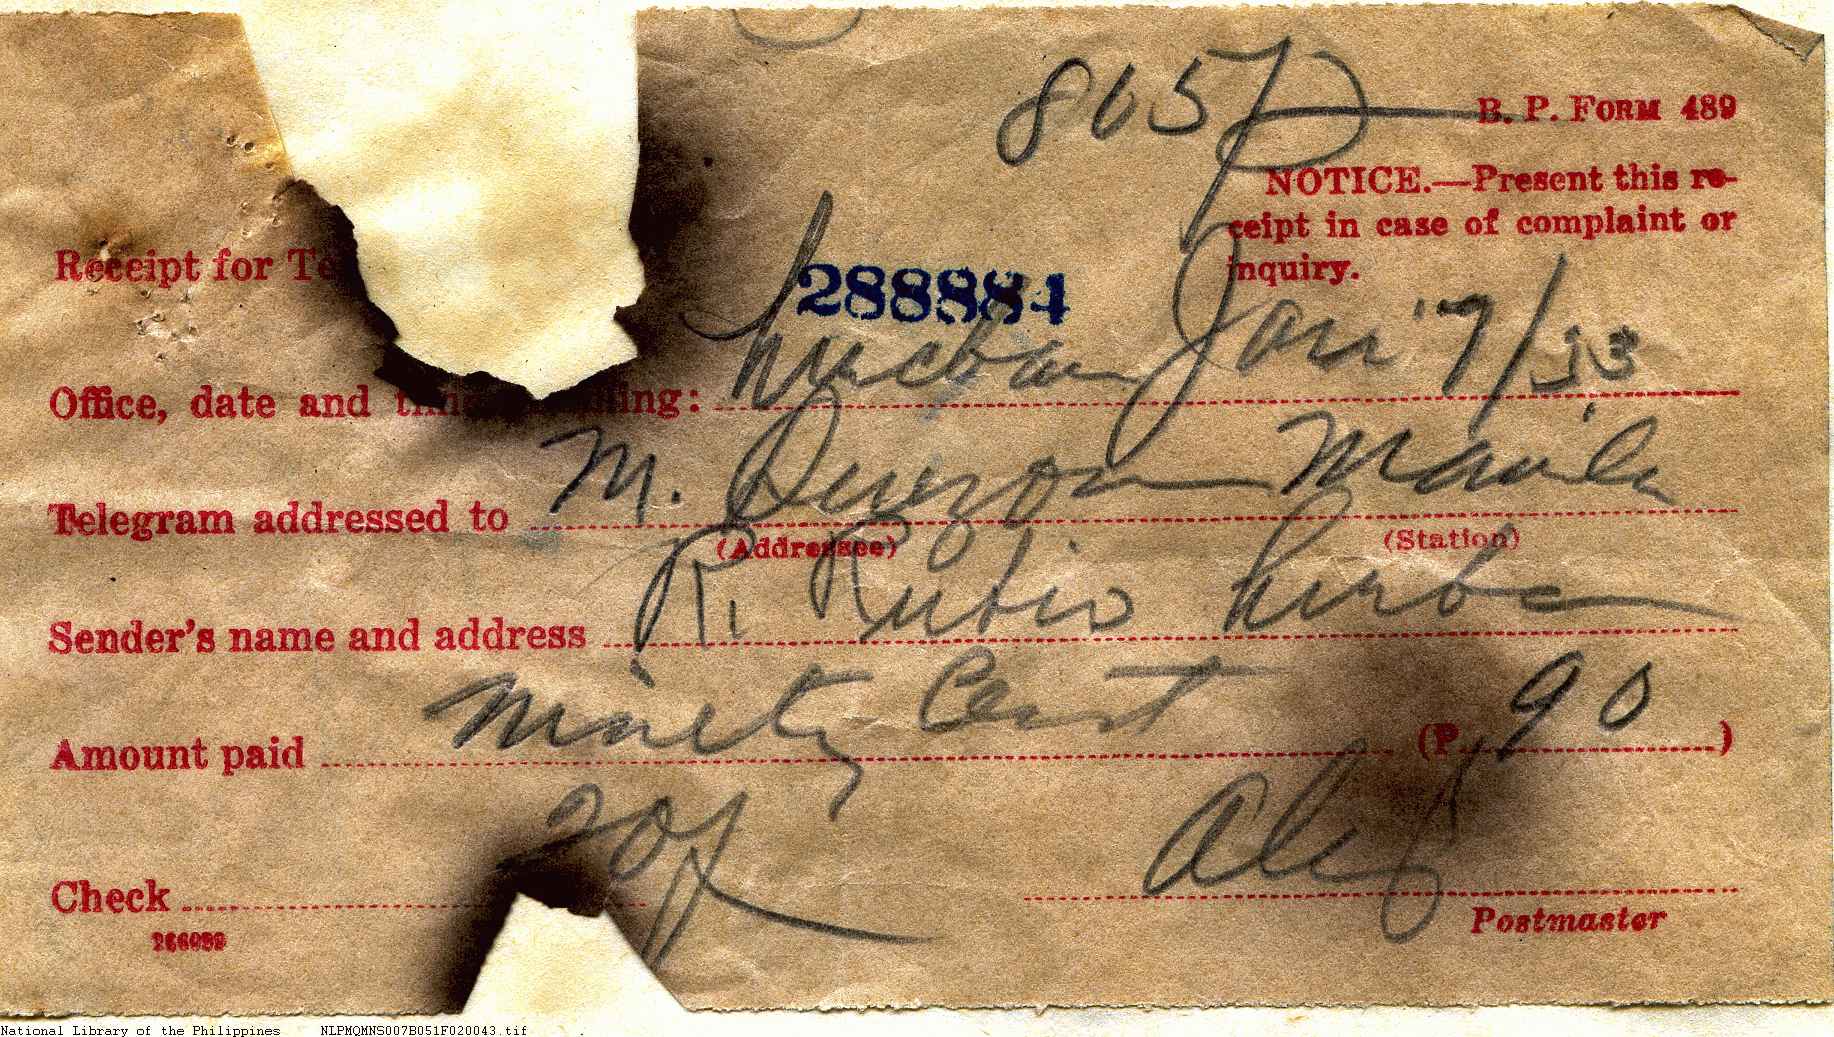 865P
B. P. FORM 489
NOTICE.—Present this re-
ceipt in case of complaint or
inquiry.
Receipt for Te
288884
Office, date and ling: Lucban Jan 7/33
Telegram addressed to M. Quezon Manila
(Addressee) (Station)
Sender's name and address R. Rubio Lucban
Amount paid Ninety Cent (P 90)
Check 20
Postmaster
266099
National Library of the Philippines NLPMQMNS007B051F020043.tif